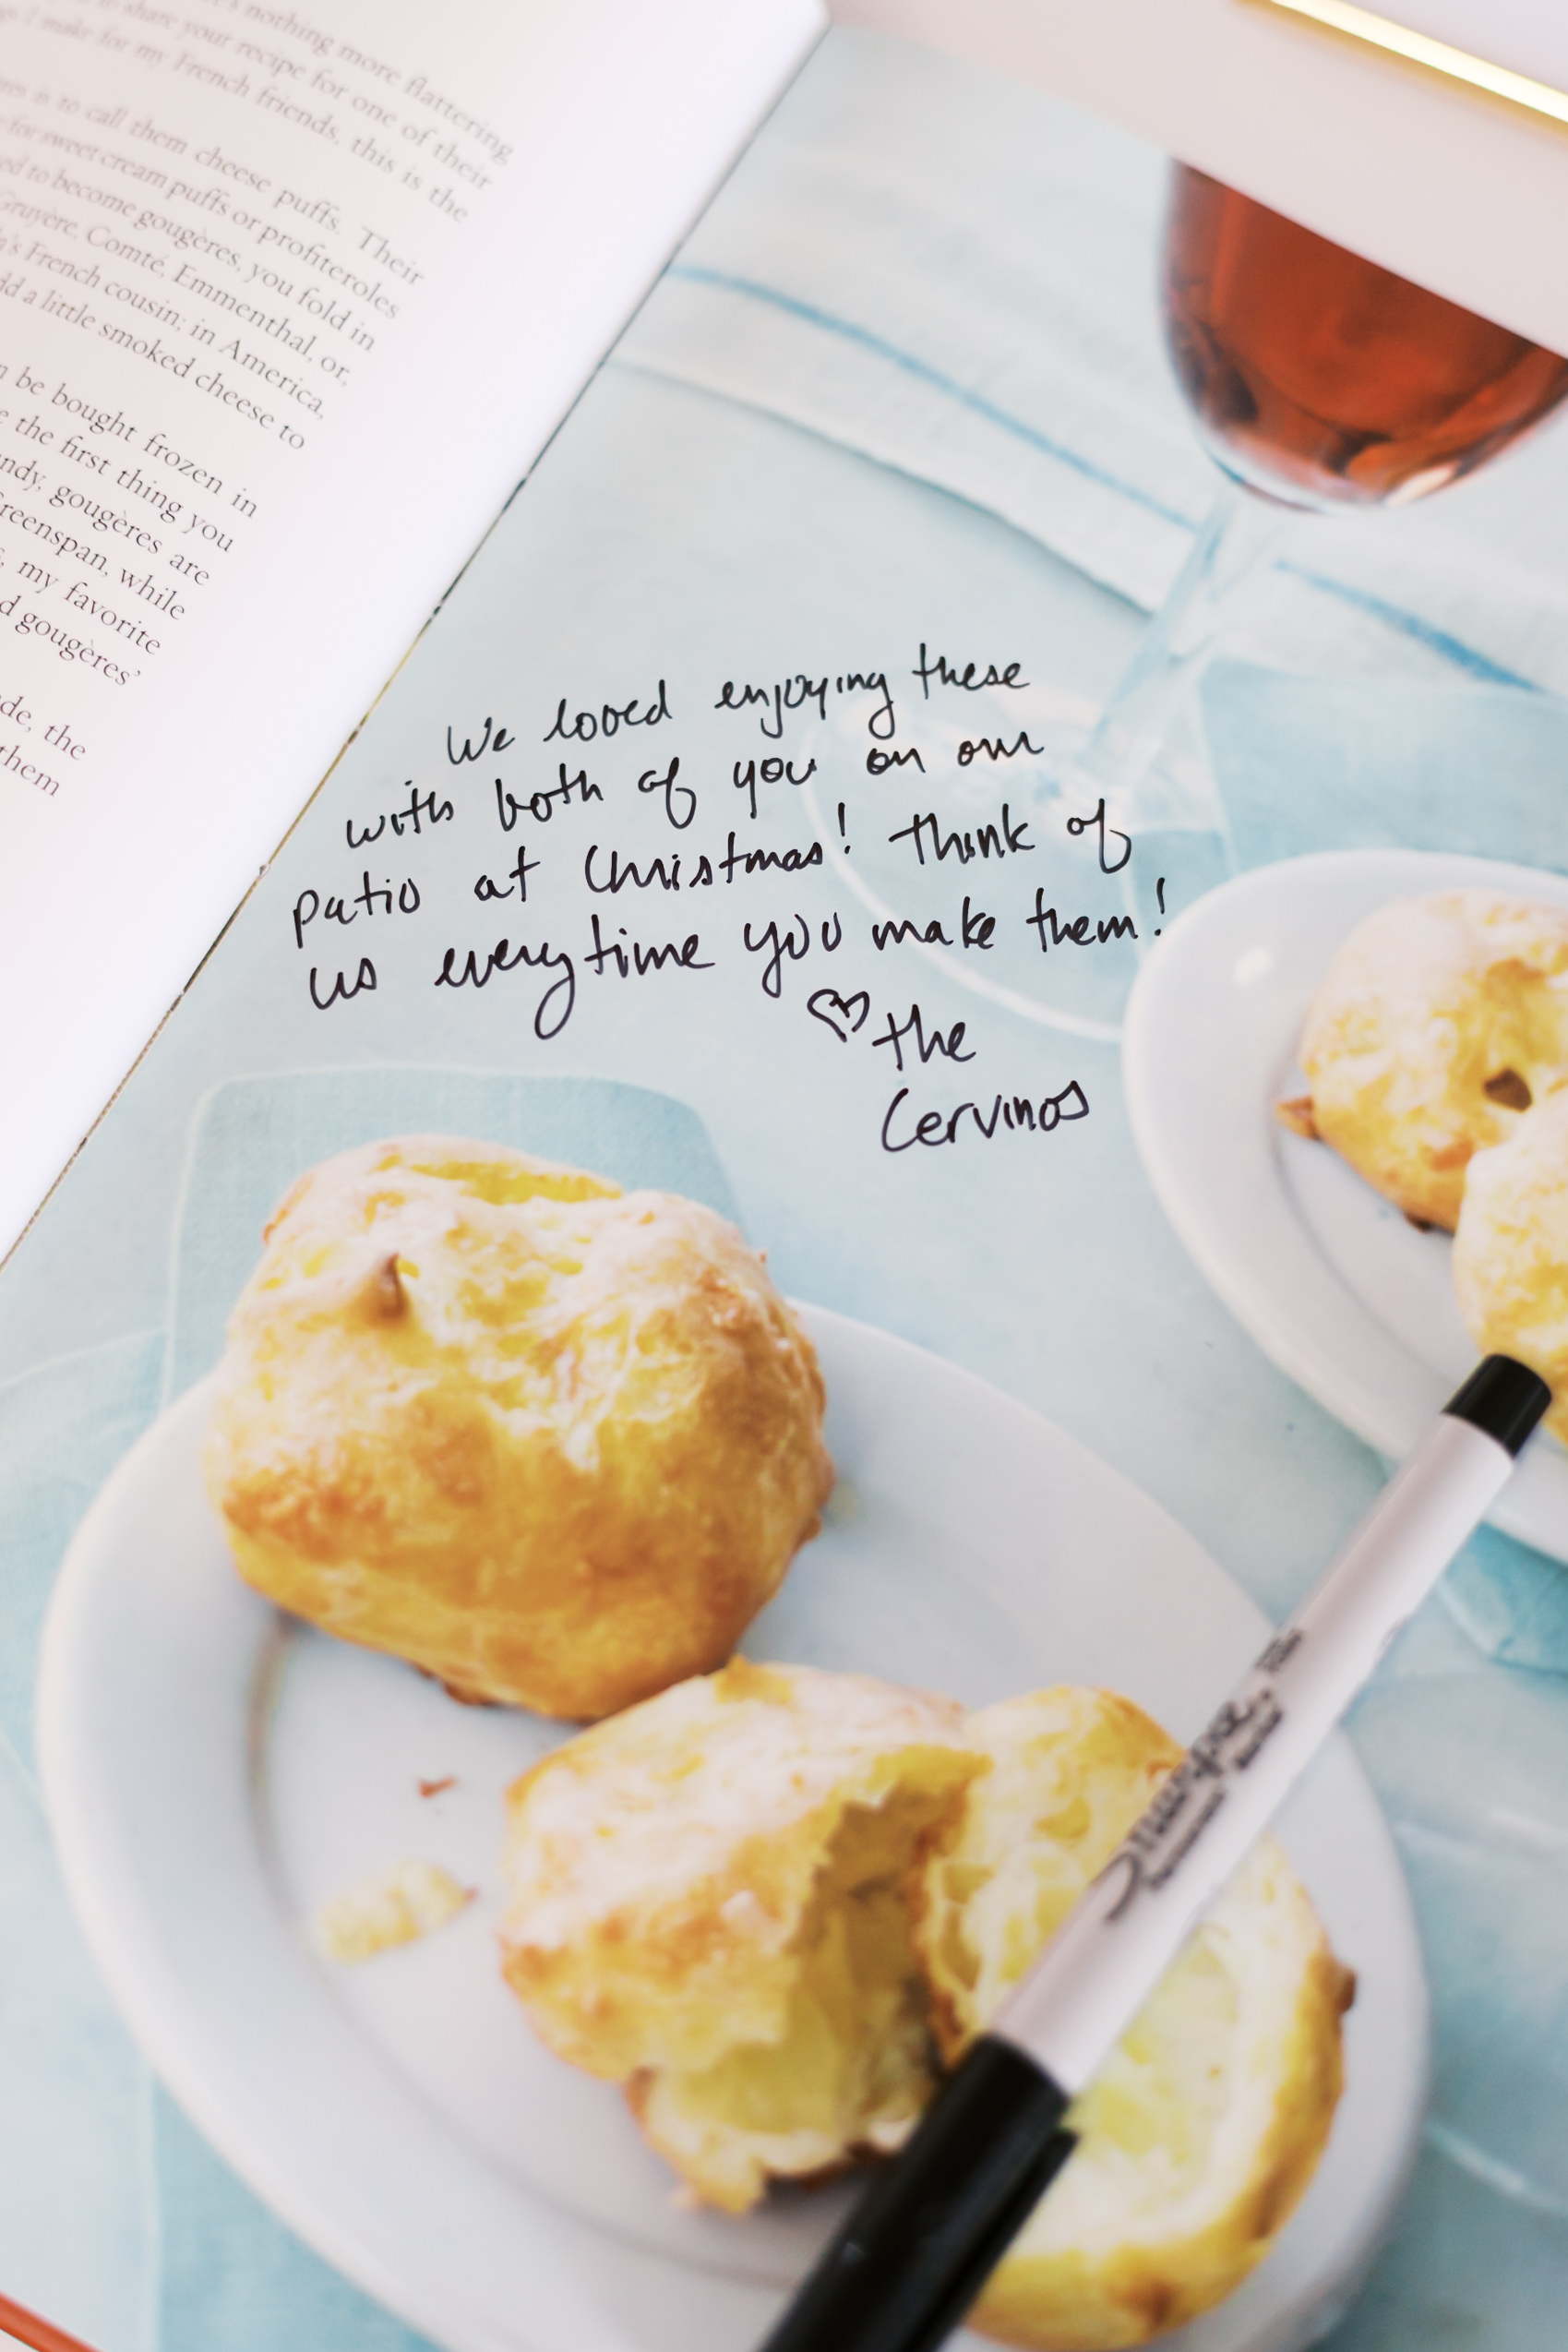 's nothing more flattering
to share your recipe for one of their
I make for my French friends, this is the
is to call them cheese puffs. Their
for sweet cream puffs or profiteroles
ed to become gougères, you fold in
Gruyère, Comté, Emmenthal, or,
a's French cousin; in America,
dd a little smoked cheese to
n be bought frozen in
e the first thing you
ndy, gougères are
reenspan, while
s, my favorite
d gougères'
de, the
them
We loved enjoying these
with both of you on our
patio at Christmas! Think of
us everytime you make them!
♡ the
Cervinos
Sharpie